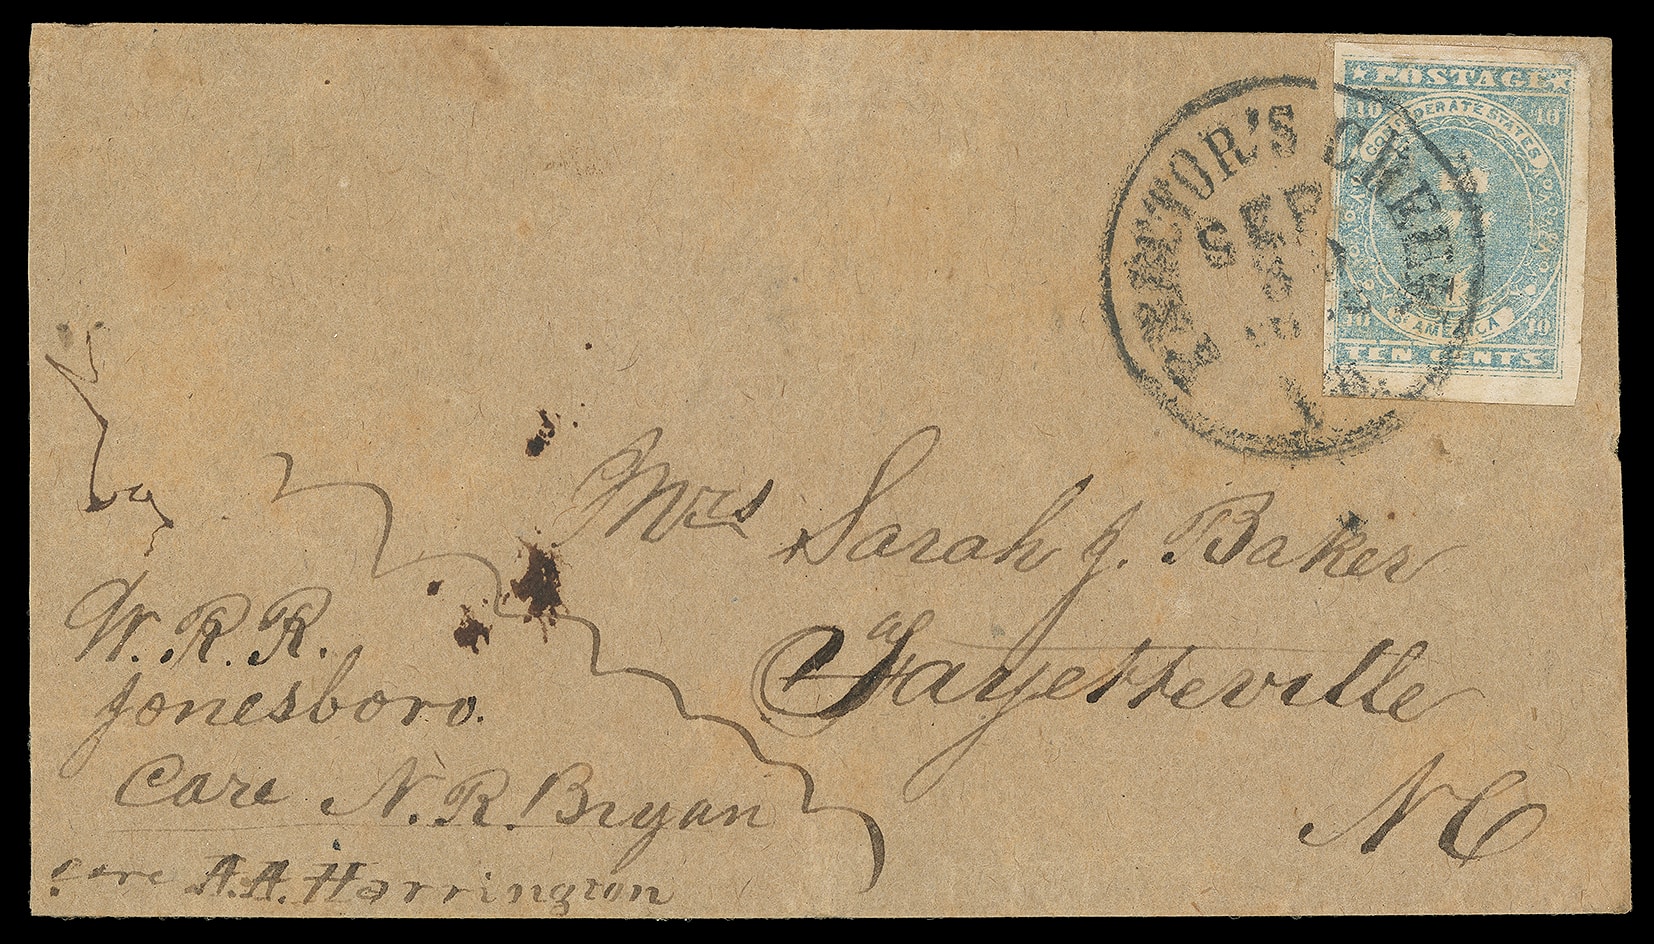 ★POSTAGE★
10 10
CONFEDERATE STATES
OF AMERICA
10 10
TEN CENTS
PROCTOR'S CREEK
SEP
Mrs Sarah J. Baker
Fayetteville
N C
W. R. R.
Jonesboro.
Care N. R. Bryan
care A. A. Harrington